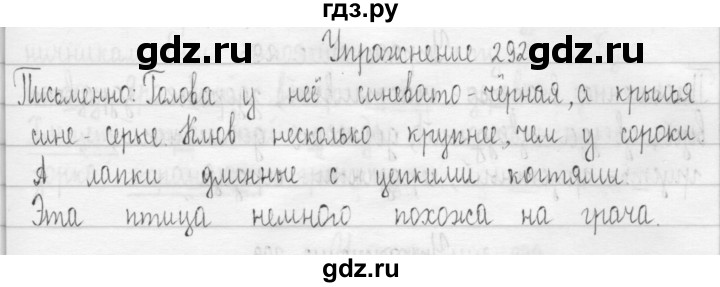 гдз.ру
Упражнение 292
gdz.ru gdz.ru
Письменно: Голова у неё синевато-чёрная, а крылья
сине серые. Клюв несколько крупнее, чем у сороки
А лапки длинные с цепкими когтями.
Эта птица немного похожа на грача.
gdz.ru